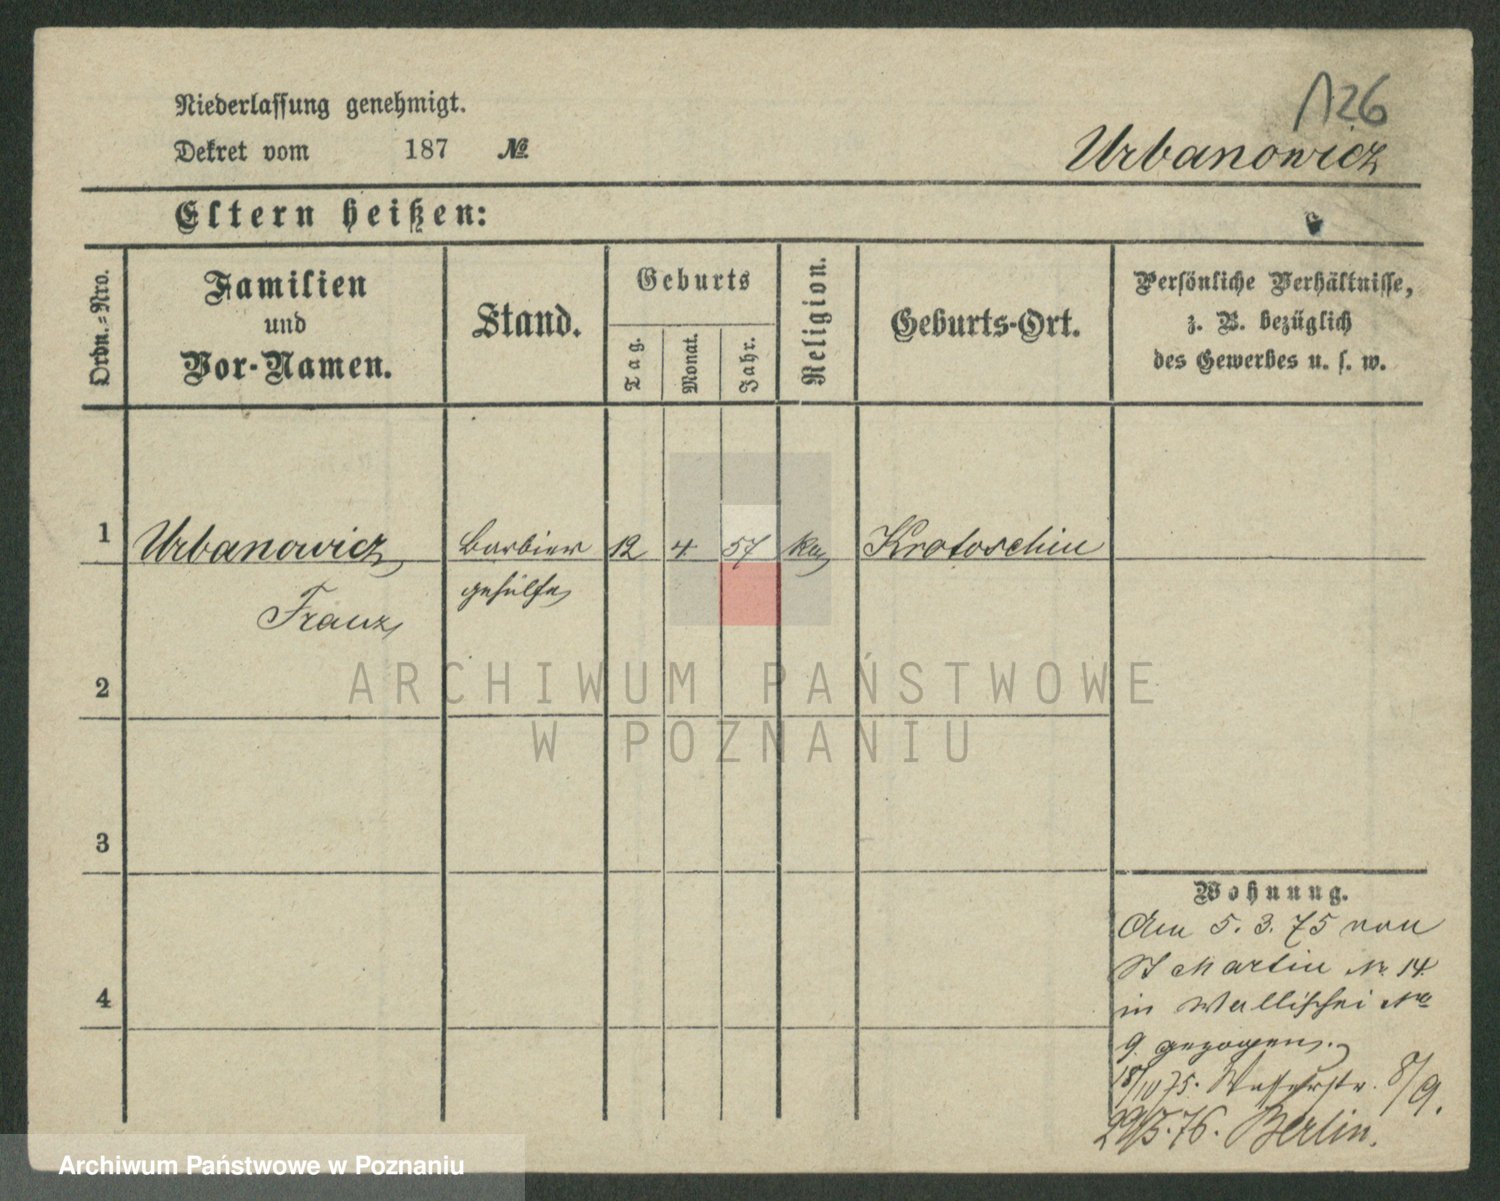 126
Niederlassung genehmigt.
Dekret vom 187 №
Urbanowicz
Eltern heißen:
Ordn.-Nro.
Familien
und
Vor-Namen.
Stand.
Geburts
Tag.
Monat.
Jahr.
Religion.
Geburts-Ort.
Persönliche Verhältnisse,
z. B. bezüglich
des Gewerbes u. s. w.
1 Urbanowicz Barbier 12 4 57 ka Krotoschin
Franz gehülfe
2
3
4
Wohnung.
Am 5. 3. 75 von
St Martin Nr. 14
in Wallischei No
9 gezogen.
18/10 75. Wasserstr. 8/9.
5.76. Berlin.
ARCHIWUM PAŃSTWOWE
W POZNANIU
Archiwum Państwowe w Poznaniu